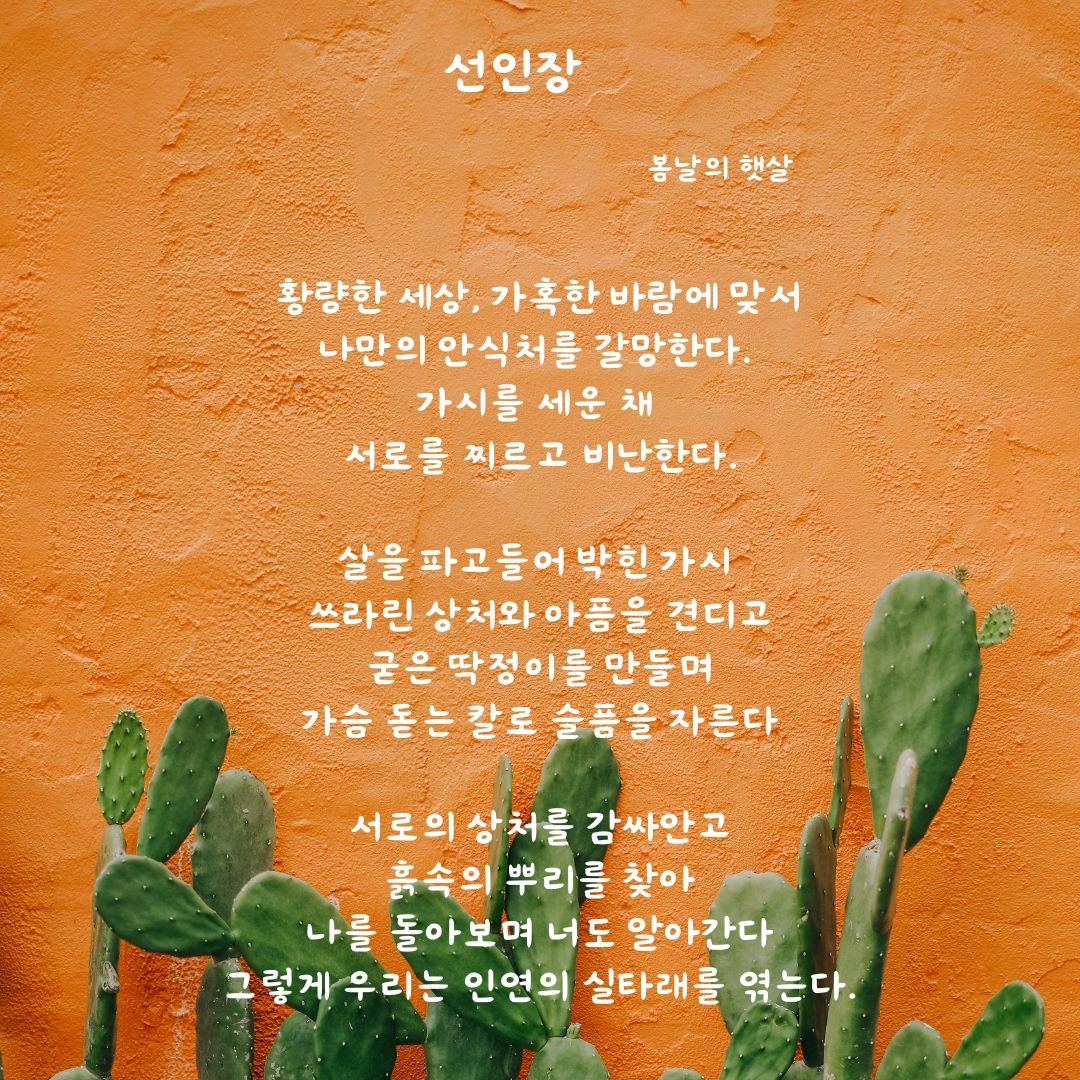 선인장
봄날의 햇살
황량한 세상, 가혹한 바람에 맞서
나만의 안식처를 갈망한다.
가시를 세운 채
서로를 찌르고 비난한다.
살을 파고들어 박힌 가시
쓰라린 상처와 아픔을 견디고
굳은 딱정이를 만들며
가슴 돋는 칼로 슬픔을 자른다
서로의 상처를 감싸안고
흙속의 뿌리를 찾아
나를 돌아보며 너도 알아간다
그렇게 우리는 인연의 실타래를 엮는다.